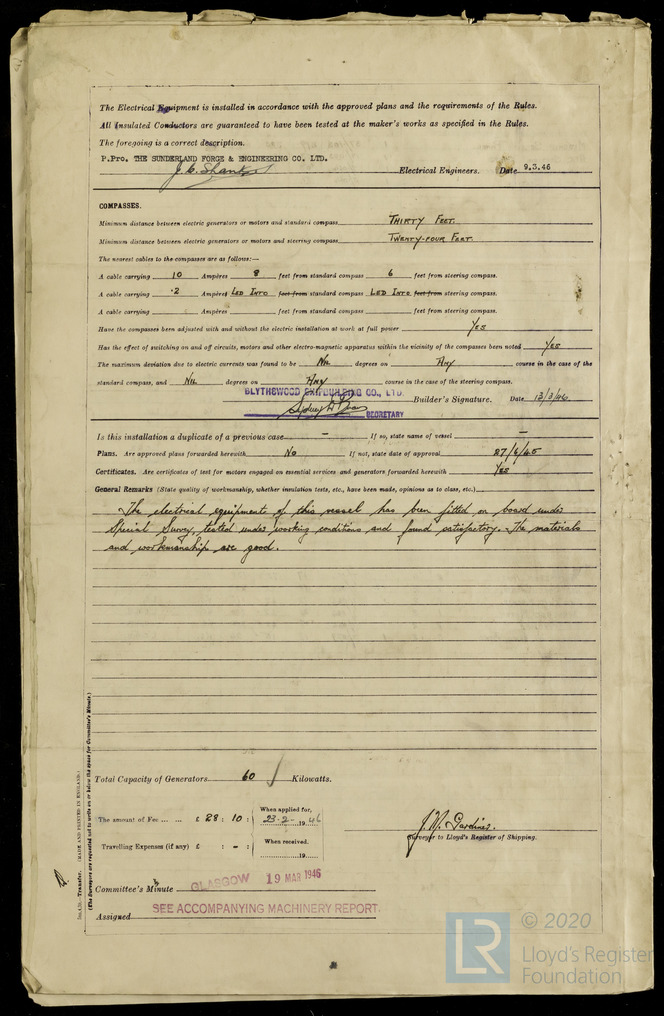 The Electrical Equipment is installed in accordance with the approved plans and the requirements of the Rules.
All Insulated Conductors are guaranteed to have been tested at the maker's works as specified in the Rules.
The foregoing is a correct description.
P.Pro. THE SUNDERLAND FORGE & ENGINEERING CO. LTD.
Electrical Engineers. Date 9.3.46
COMPASSES.
Minimum distance between electric generators or motors and standard compass THIRTY FEET.
Minimum distance between electric generators or motors and steering compass TWENTY-FOUR FEET
The nearest cables to the compasses are as follows:—
A cable carrying 10 Ampères 8 feet from standard compass 6 feet from steering compass.
A cable carrying ·2 Ampères LED INTO feet from standard compass LED INTO feet from steering compass.
A cable carrying Ampères feet from standard compass feet from steering compass.
Have the compasses been adjusted with and without the electric installation at work at full power YES
Has the effect of switching on and off circuits, motors and other electro-magnetic apparatus within the vicinity of the compasses been noted YES
The maximum deviation due to electric currents was found to be NIL degrees on ANY course in the case of the
standard compass, and NIL degrees on ANY course in the case of the steering compass.
BLYTHSWOOD SHIPBUILDING CO., LTD.
Builder's Signature. Date 13/3/46
SECRETARY
Is this installation a duplicate of a previous case – If so, state name of vessel –
Plans. Are approved plans forwarded herewith No If not, state date of approval 27/6/45
Certificates. Are certificates of test for motors engaged on essential services and generators forwarded herewith Yes
General Remarks (State quality of workmanship, whether insulation tests, etc., have been made, opinions as to class, etc.)
The electrical equipment of this vessel has been fitted on board under
Special Survey, tested under working conditions and found satisfactory. The materials
and workmanship are good.
Total Capacity of Generators 60 Kilowatts.
The amount of Fee ... ... £ 28 : 10 :
When applied for,
23-2-1946
Travelling Expenses (if any) £ : – :
When received.
19
J. N. Gardiner.
Surveyor to Lloyd's Register of Shipping.
Committee's Minute GLASGOW 19 MAR 1946
Assigned SEE ACCOMPANYING MACHINERY REPORT.
(The Surveyors are requested not to write on or below the space for Committee's Minute.)
Transfer. (MADE AND PRINTED IN ENGLAND.)
LR
© 2020
Lloyd's Register
Foundation